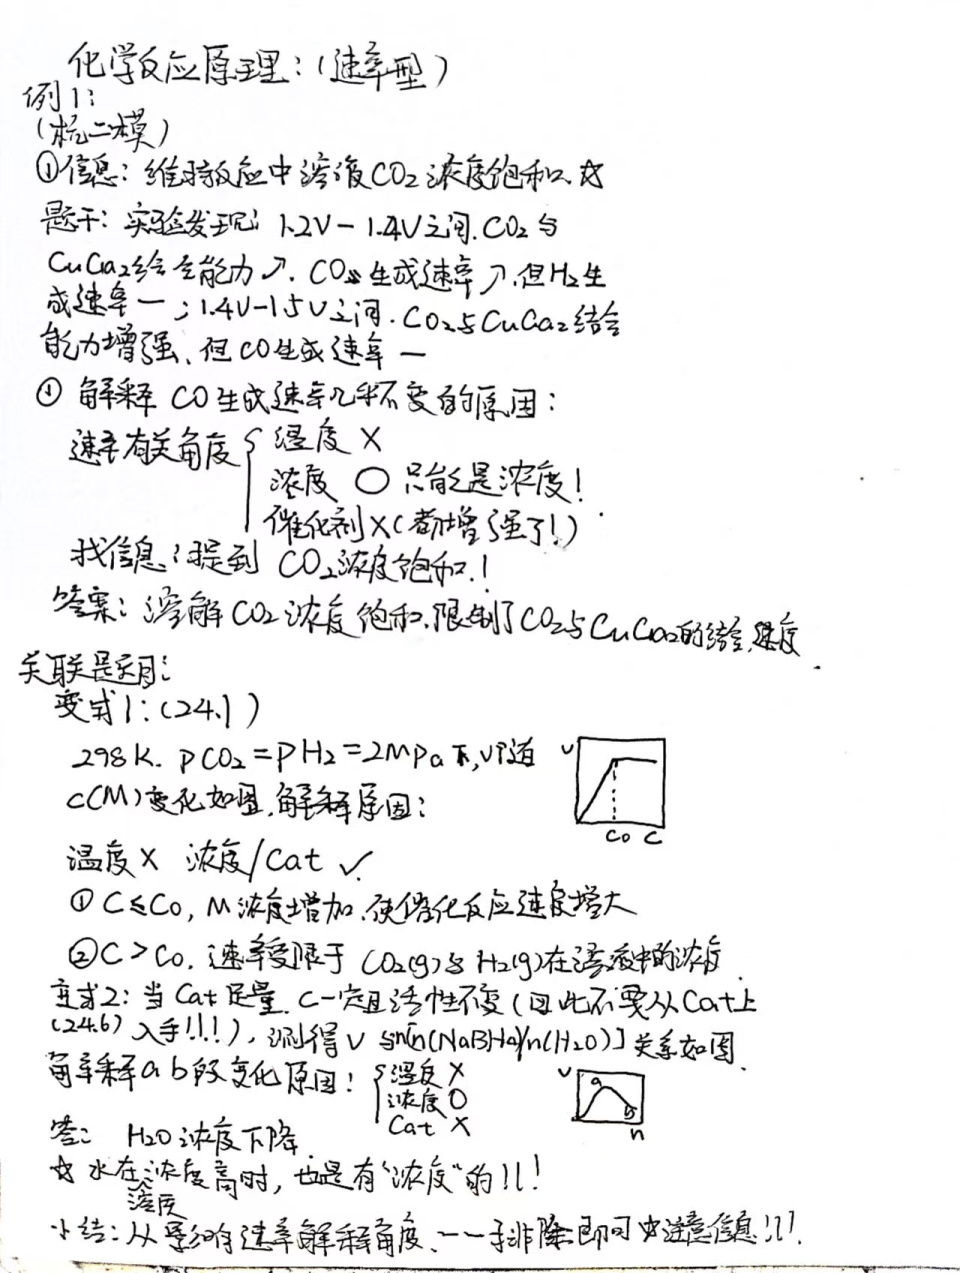 化学反应原理：（速率型）
例1：
（杭二模）
①信息：维持反应中溶液CO2浓度饱和.☆
题干：实验发现：1.2V-1.4V之间.CO2与
CuGa2结合能力↗.CO生成速率↗.但H2生
成速率一；1.4V-1.5V之间.CO2与CuGa2结合
能力增强、但CO生成速率一
① 解释CO生成速率几乎不变的原因：
速率有关角度{温度 ×
浓度 ○ 只能是浓度！
催化剂×（都增强了！）
找信息：提到 CO2浓度饱和！
答案：溶解CO2浓度饱和.限制了CO2与CuGa2的结合速度.
关联题目：
变式1：（24.1）
298K. pCO2=pH2=2MPa下,v随
c(M)变化如图.解释原因：
v
c0 c
温度× 浓度/Cat ✓
①C≤C0, M浓度增加.使催化反应速度增大
②C>C0. 速率受限于 CO2(g)与H2(g)在溶液中的浓度.
变式2：当Cat足量.C一定且活性不变（因此不要从Cat上
(24.6)入手!!!），测得v与n[n(NaBH4)/n(H2O)]关系如图.
解释ab段变化原因：{温度 ×
浓度 ○
Cat ×
v
a
b
n
答：H2O浓度下降.
☆水在浓度高时，也是有“浓度”的!!!
溶质
小结：从影响速率解释角度、一一排除即可☆注意信息!!!